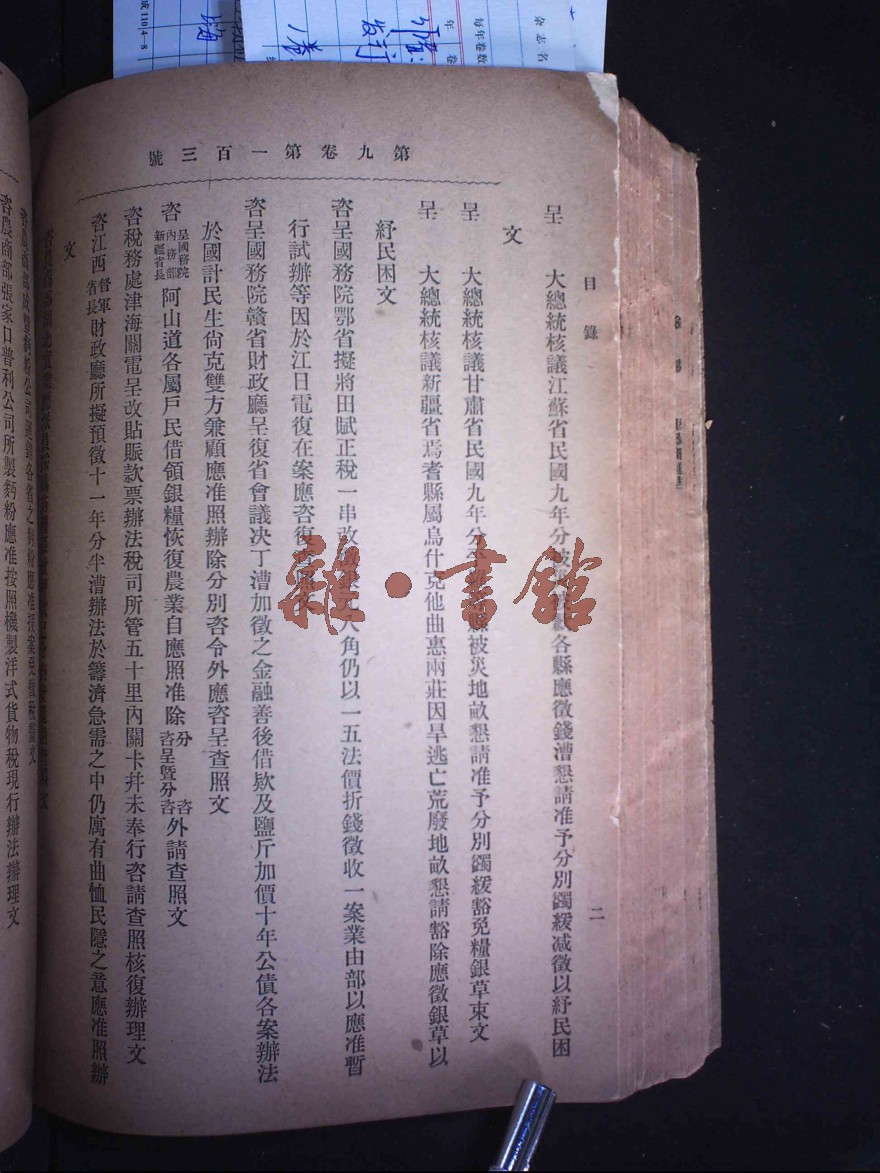 杂志名
每年卷数
年 卷
成 110(4-8
第九卷第一百三號
目錄
二
呈 大總統核議江蘇省民國九年分被各縣應徵錢漕懇請准予分別蠲緩減徵以紓民困
文
呈 大總統核議甘肅省民國九年分縣被災地畝懇請准予分別蠲緩豁免糧銀草束文
呈 大總統核議新疆省焉耆縣屬烏什克他曲惠兩莊因旱逃亡荒廢地畝懇請豁除應徵銀草以
紓民困文
咨呈國務院鄂省擬將田賦正稅一串改角仍以一五法價折錢徵收一案業由部以應准暫
行試辦等因於江日電復在案應咨復文
咨呈國務院贛省財政廳呈復省會議決丁漕加徵之金融善後借欵及鹽斤加價十年公債各案辦法
於國計民生尙克雙方兼顧應准照辦除分別咨令外應咨呈查照文
咨呈國務院內務部新疆省長阿山道各屬戶民借領銀糧恢復農業自應照准除分咨呈暨分咨咨外請查照文
咨稅務處津海關電呈改貼賑款票辦法稅司所管五十里內關卡幷未奉行咨請查照核復辦理文
咨江西督軍省長財政廳所擬預徵十一年分半漕辦法於籌濟急需之中仍寓有曲恤民隱之意應准照辦
文
咨農商部張家口普利公司所製麪粉應准按照機製洋式貨物稅現行辦法辦理文
雜·書館